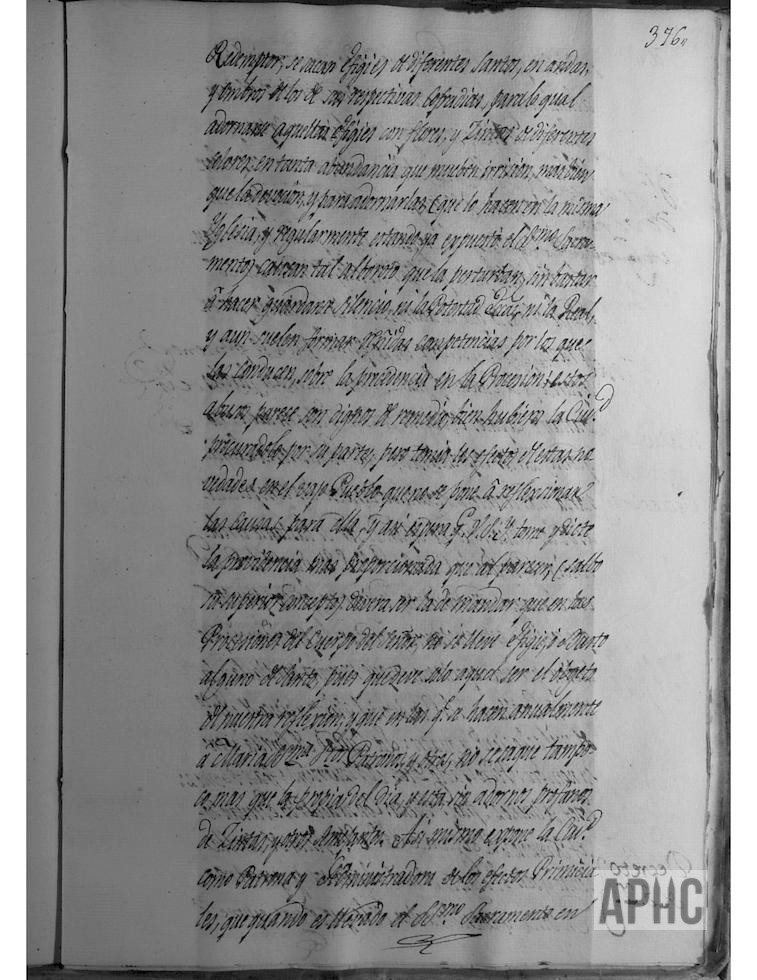 376
Redemptor, se sacan Efigies de diferentes Santos, en andas,
y ombros de los de sus respectivas Cofradias, para lo qual
adornanse aquellas Efigies con flores, y Zintas de diferentes
colores, en tanta abundancia que mueben irrision, mas bien
que la devocion, y para adornarlas que lo hacen en la misma
Yglesia, y regularmente estando ya expuesto el SSmo Sacra-
mento, causan tal alboroto que la perturban, sin bastar
a hacer guardar silencio, ni la Potestad ni la Real,
y aun suelen formar competencias por los que
las conducen, sobre la precedencia en la Procesion: estos
abusos parece son dignos de remedio, bien hubiera la Ciud
procuradolo por su parte, pero temia los efectos de estas no-
vedades en el vajo Pueblo que no se pone a reflexionar
las causas para ello, y asi espera q. V.A. tome y dicte
la providencia mas proporcionada que al parecer, (salbo
su superior concepto) devera ser la de mandar que en las
Prosesiones del Cuerpo del Señor, no se lleve Efigie de Santo
alguno pues que deve solo aquel ser el objeto
de nuestra reflexion, y que en las q. se hacen anualmente
a Maria SSma Patrona, y otras, no se saque tampo-
co mas que la propia del dia, y esta sin adornos profanos
de Zintas, y otros semejantes. Asi mismo expone la Ciud
como Patrona y Administradora de los efectos Primicia-
les, que quando es llevado el SSmo Sacramento en
Decreto
APHC